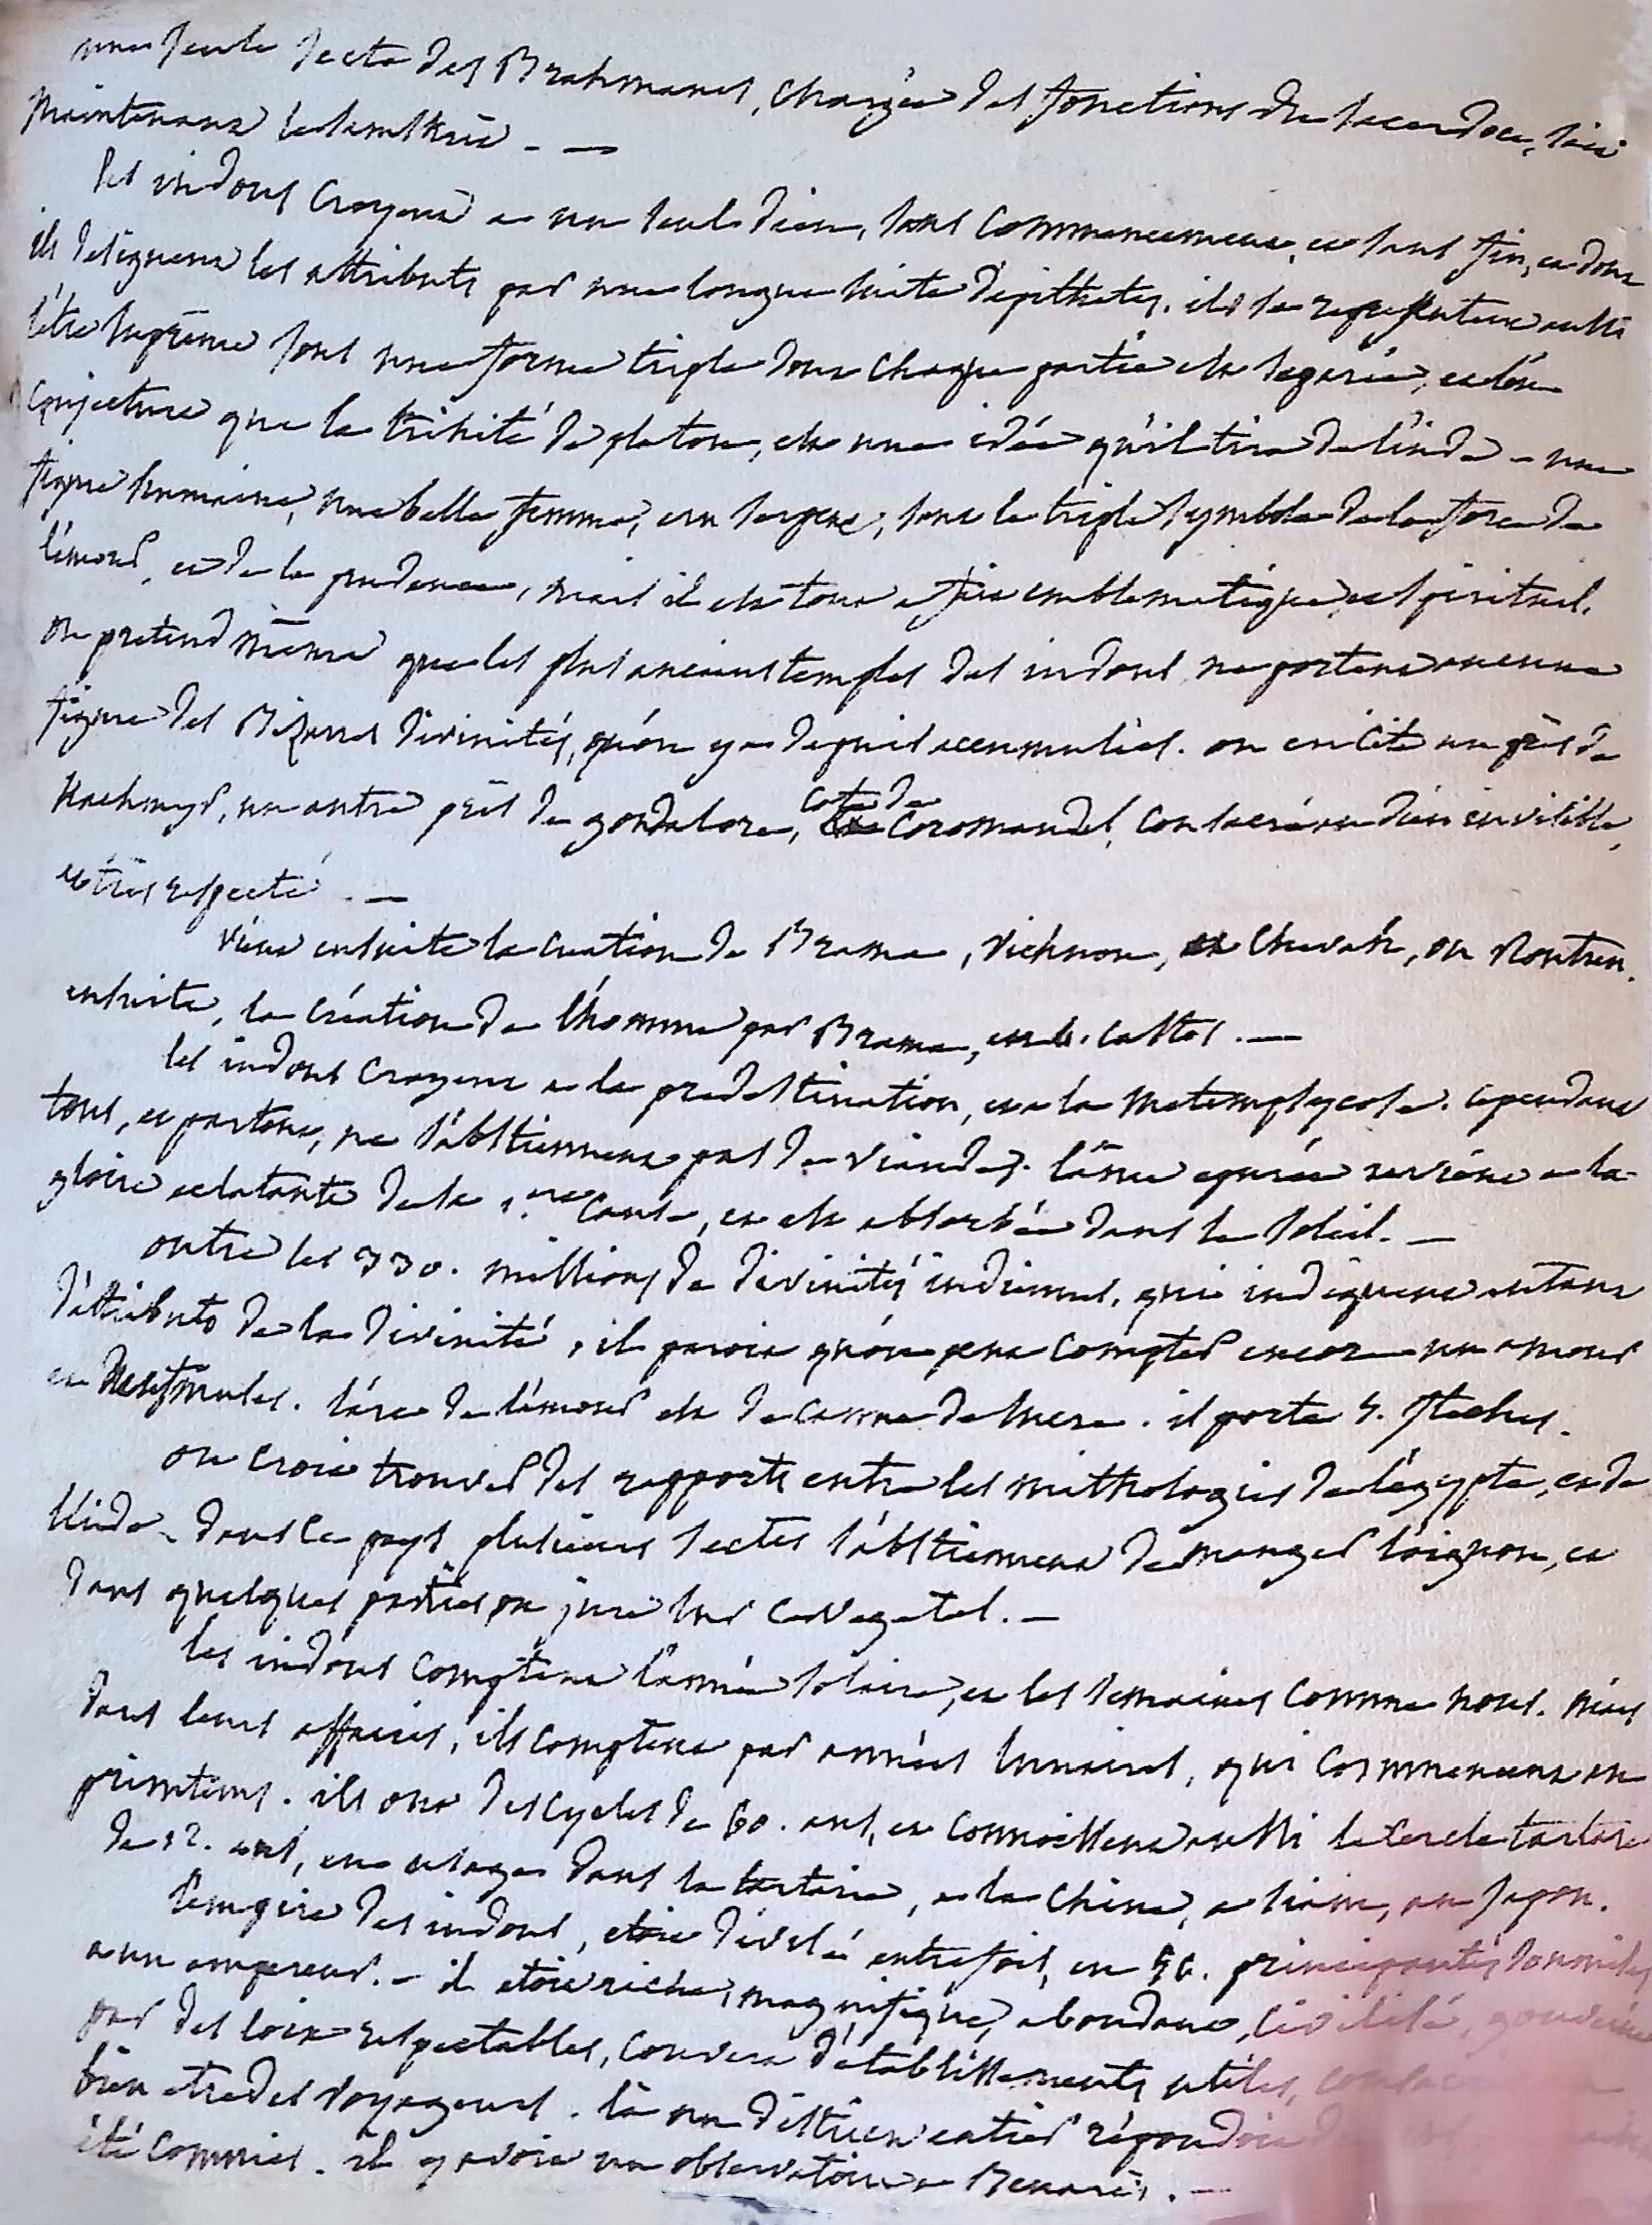 une seule secte des Brahmanes, chargée des fonctions du sacerdoce, sait
maintenant le samskrit. —
les indous croyent a un seul dieu, sans commencement, et sans fin, et dont
ils designent les attributs par une longue suite d'épithetes. ils se representent aussi
l'être suprême sous une forme triple dont chaque partie est separée, et l'on
conjecture que la trinité de platon, est une idée qu'il tira de l'inde - une
figure humaine, une belle femme, un serpent, sont le triple symbole de la force de
l'amour, et de la prudence, mais il est tout a fait emblematique, et spirituel.
on pretend même que les plus anciens temples des indous ne portent aucune
figure des Bizarres divinités, qu'on y a depuis accumulées. on en cite un près de
Kachmyr, un autre près de gondalore, cote de Coromandel, consacré au dieu invisible,
et très respecté. —
vient ensuite la creation de Brama, Vichnou, et Chevah, ou Routren.
ensuite, la création de l'homme par Brama, et les 4. castes. —
les indous croyent a la predestination, et a la metempsycose. cependant
tous, et partout, ne s'abstiennent pas de viandes. l'âme epurée revient a la
gloire eclatante de la 1.ere cause, et est absorbée dans le soleil. —
outre les 330. millions de divinités indiennes, qui indiquent autant
d'attributs de la divinité, il paroit qu'on peut compter encore un amour
et des l'arc de l'amour est de canne de sucre. il porte 5. fleches.
on croit trouver des rapports entre les mithologies de l'égypte, et de
l'inde - dans ce pays plusieurs sectes s'abstiennent de manger l'oignon, et
dans quelques parties on jure sur ce vegetal. —
les indous comptent l'année solaire, et les semaines comme nous. mais
dans leurs affaires, ils comptent par années lunaires, qui commencent au
printems. ils ont des cycles de 60. ans, et connoissent aussi le cercle tartare
de 12. ans, en usage dans la tartarie, a la Chine, a siam, au Japon.
l'empire des indous, etoit divisé autrefois, en 56. principautés soumises
a un empereur. - il etoit riche, magnifique, abondant, civilisé, gouverné
par des loix respectables, couvert d'etablissements utiles,
bien etre des voyageurs. là un district entier répondoit
été commis. il y avoit un observatoire a Benarès. —